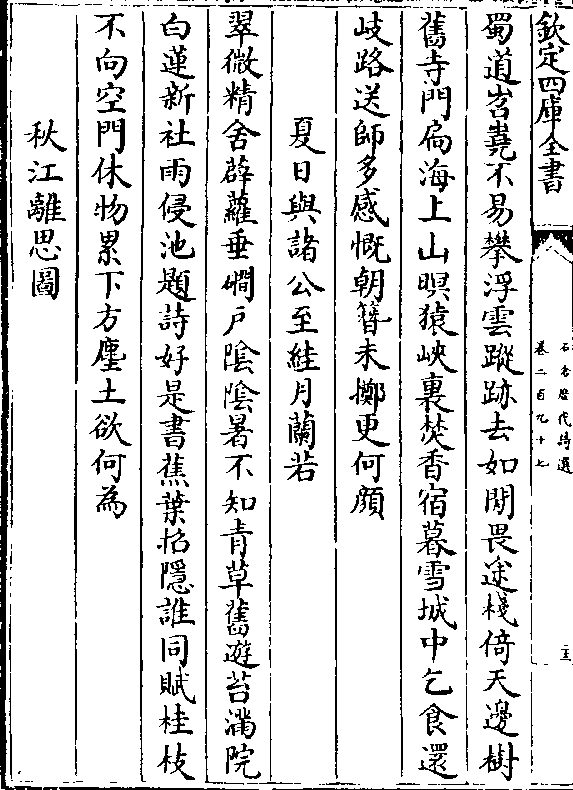 欽定四庫全書
石倉歷代詩選
卷二百九十七
蜀道岧嶤不易攀浮雲蹤跡去如閒畏途棧倚天邊樹
舊寺門扃海上山暝猿峽裏焚香宿暮雪城中乞食還
岐路送師多感慨朝簪未擲更何顔
夏日與諸公至絓月蘭若
翠微精舍辟蘿垂磵戸陰陰暑不知青草舊遊苔滿院
白蓮新社雨侵池題詩好是書蕉葉招隱誰同賦桂枝
不向空門休物累下方塵土欲何為
秋江離思圖